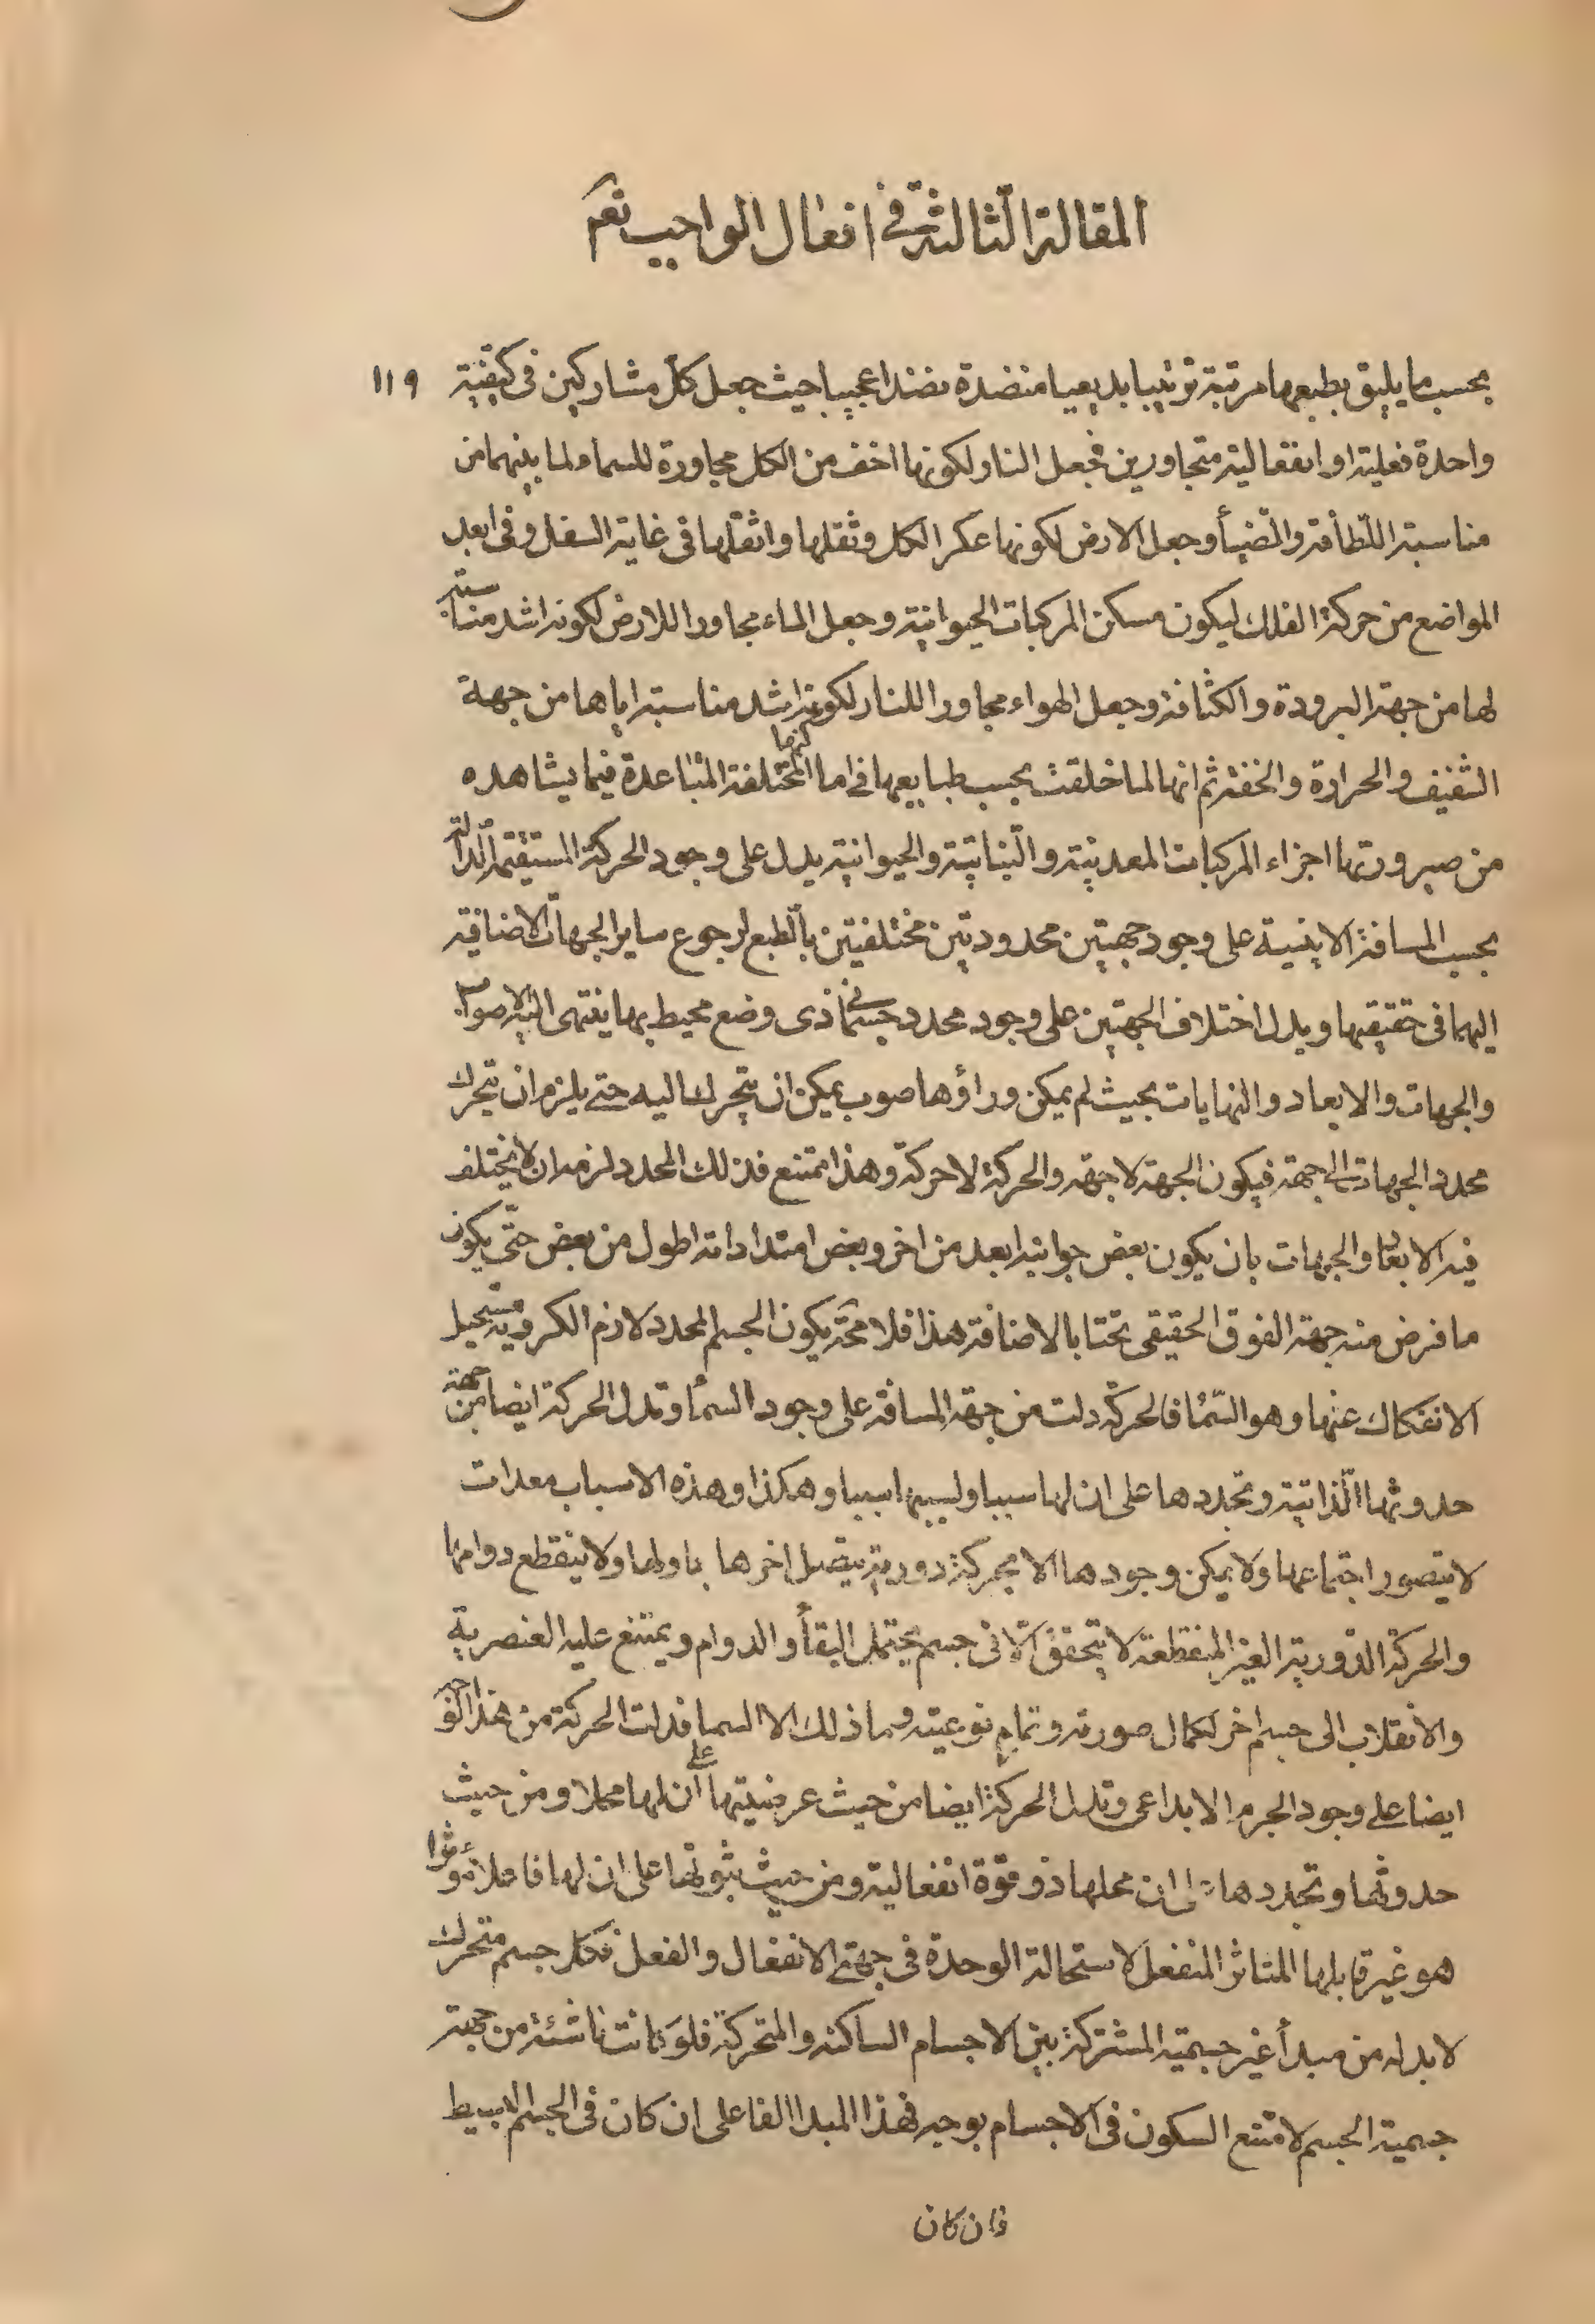 المقالة الثالثة في افعال الواجب تعم
بحسب ما يليق بطبعها مرتبة ترتيبا بديعيا منضدة نضدا عجيبا حيث جعل كل مشاركين فى كيفية ١١٩
واحدة فعلية او انفعالية متجاورين فجعل النار لكونها اخف من الكل مجاورة للسماء لما بينهما من
مناسبة اللطافة والضيأ وجعل الارض لكونها عكر الكل وثقلها واثقلها فى غاية السفل وفى ابعد
المواضع من حركة الفلك ليكون مسكن المركبات الحيوانية وجعل الماء مجاورا للارض لكونه اشد مناسبة
لها من جهة البرودة والكثافة وجعل الهواء مجاورا للنار لكونه اشد مناسبة اياها من جهة
الشفيف والحرارة والخفة ثم انها لما خلقت بحسب طبايعها فى اماكنها المختلفة المتباعدة فيما يشاهده
من صيرورتها اجزاء المركبات المعدنية والنباتية والحيوانية يدل على وجود الحركة المستقيمة الدالة
بحسب المسافة الاينية على وجود جهتين محدودتين مختلفيتن بالطبع لرجوع ساير الجهات الاضافية
اليهما فى حقيقتها ويدل اختلاف الجهتين على وجود محدد جسمانى ذى وضع محيط بها ينتهى اليه الاصواب
والجهات والابعاد والنهايات بحيث لم يمكن وراؤها صوب يمكن ان يتحرك اليه حتى يلزم ان يتحرك
محدد الجهات الى جهة فيكون الجهة لا جهة والحركة لا حركة وهذا ممتنع فذلك المحدد لزمه ان لا يختلف
فيه الابعاد والجهات بان يكون بعض جوانبه ابعد من اخر وبعض امتداداته اطول من بعض حتى يكون
ما فرض منه جهة الفوق الحقيقى تحتا بالاضافة هذا فلا محة يكون الجسم المحدد لازم الكروية مستحيل
الانفكاك عنها وهو السمأ فالحركة دلت من جهة المسافة على وجود السمأ وتدل الحركة ايضا من جهة
حدوثها الذاتية وتجددها على ان لها سببا ولسببها سببا وهكذا وهذه الاسباب معدات
لا يتصور اجتماعها ولا يمكن وجودها الا بحركة دورية يتصل اخرها باولها ولا ينقطع دوامها
والحركة الدورية الغير المنقطعة لا يتحقق الا فى جسم يحتمل البقأ والدوام ويمتنع عليه العنصرية
والانقلاب الى جسم اخر لكمال صورته وتمام نوعيته وما ذلك الا السما فدلت الحركة من هذا الوجه
ايضا على وجود الجرم الابداعى وتدل الحركة ايضا من حيث عرضيتها على ان لها محلا ومن حيث
حدوثها وتجددها على ان محلها ذو قوة انفعالية ومن حيث ثبوتها على ان لها فاعلا مؤثرا
هو غير قابلها المتاثر المنفعل لاستحالة الوحدة فى جهتى الانفعال والفعل فكل جسم متحرك
لا بد له من مبدأ غير جسميته المشتركة بين الاجسام الساكنة والمتحركة فلو كانت ناشئة من جهة
جسمية الجسم لامتنع السكون فى الاجسام بوجه فهذا المبدا الفاعلى ان كان فى الجسم البسيط
فان كان